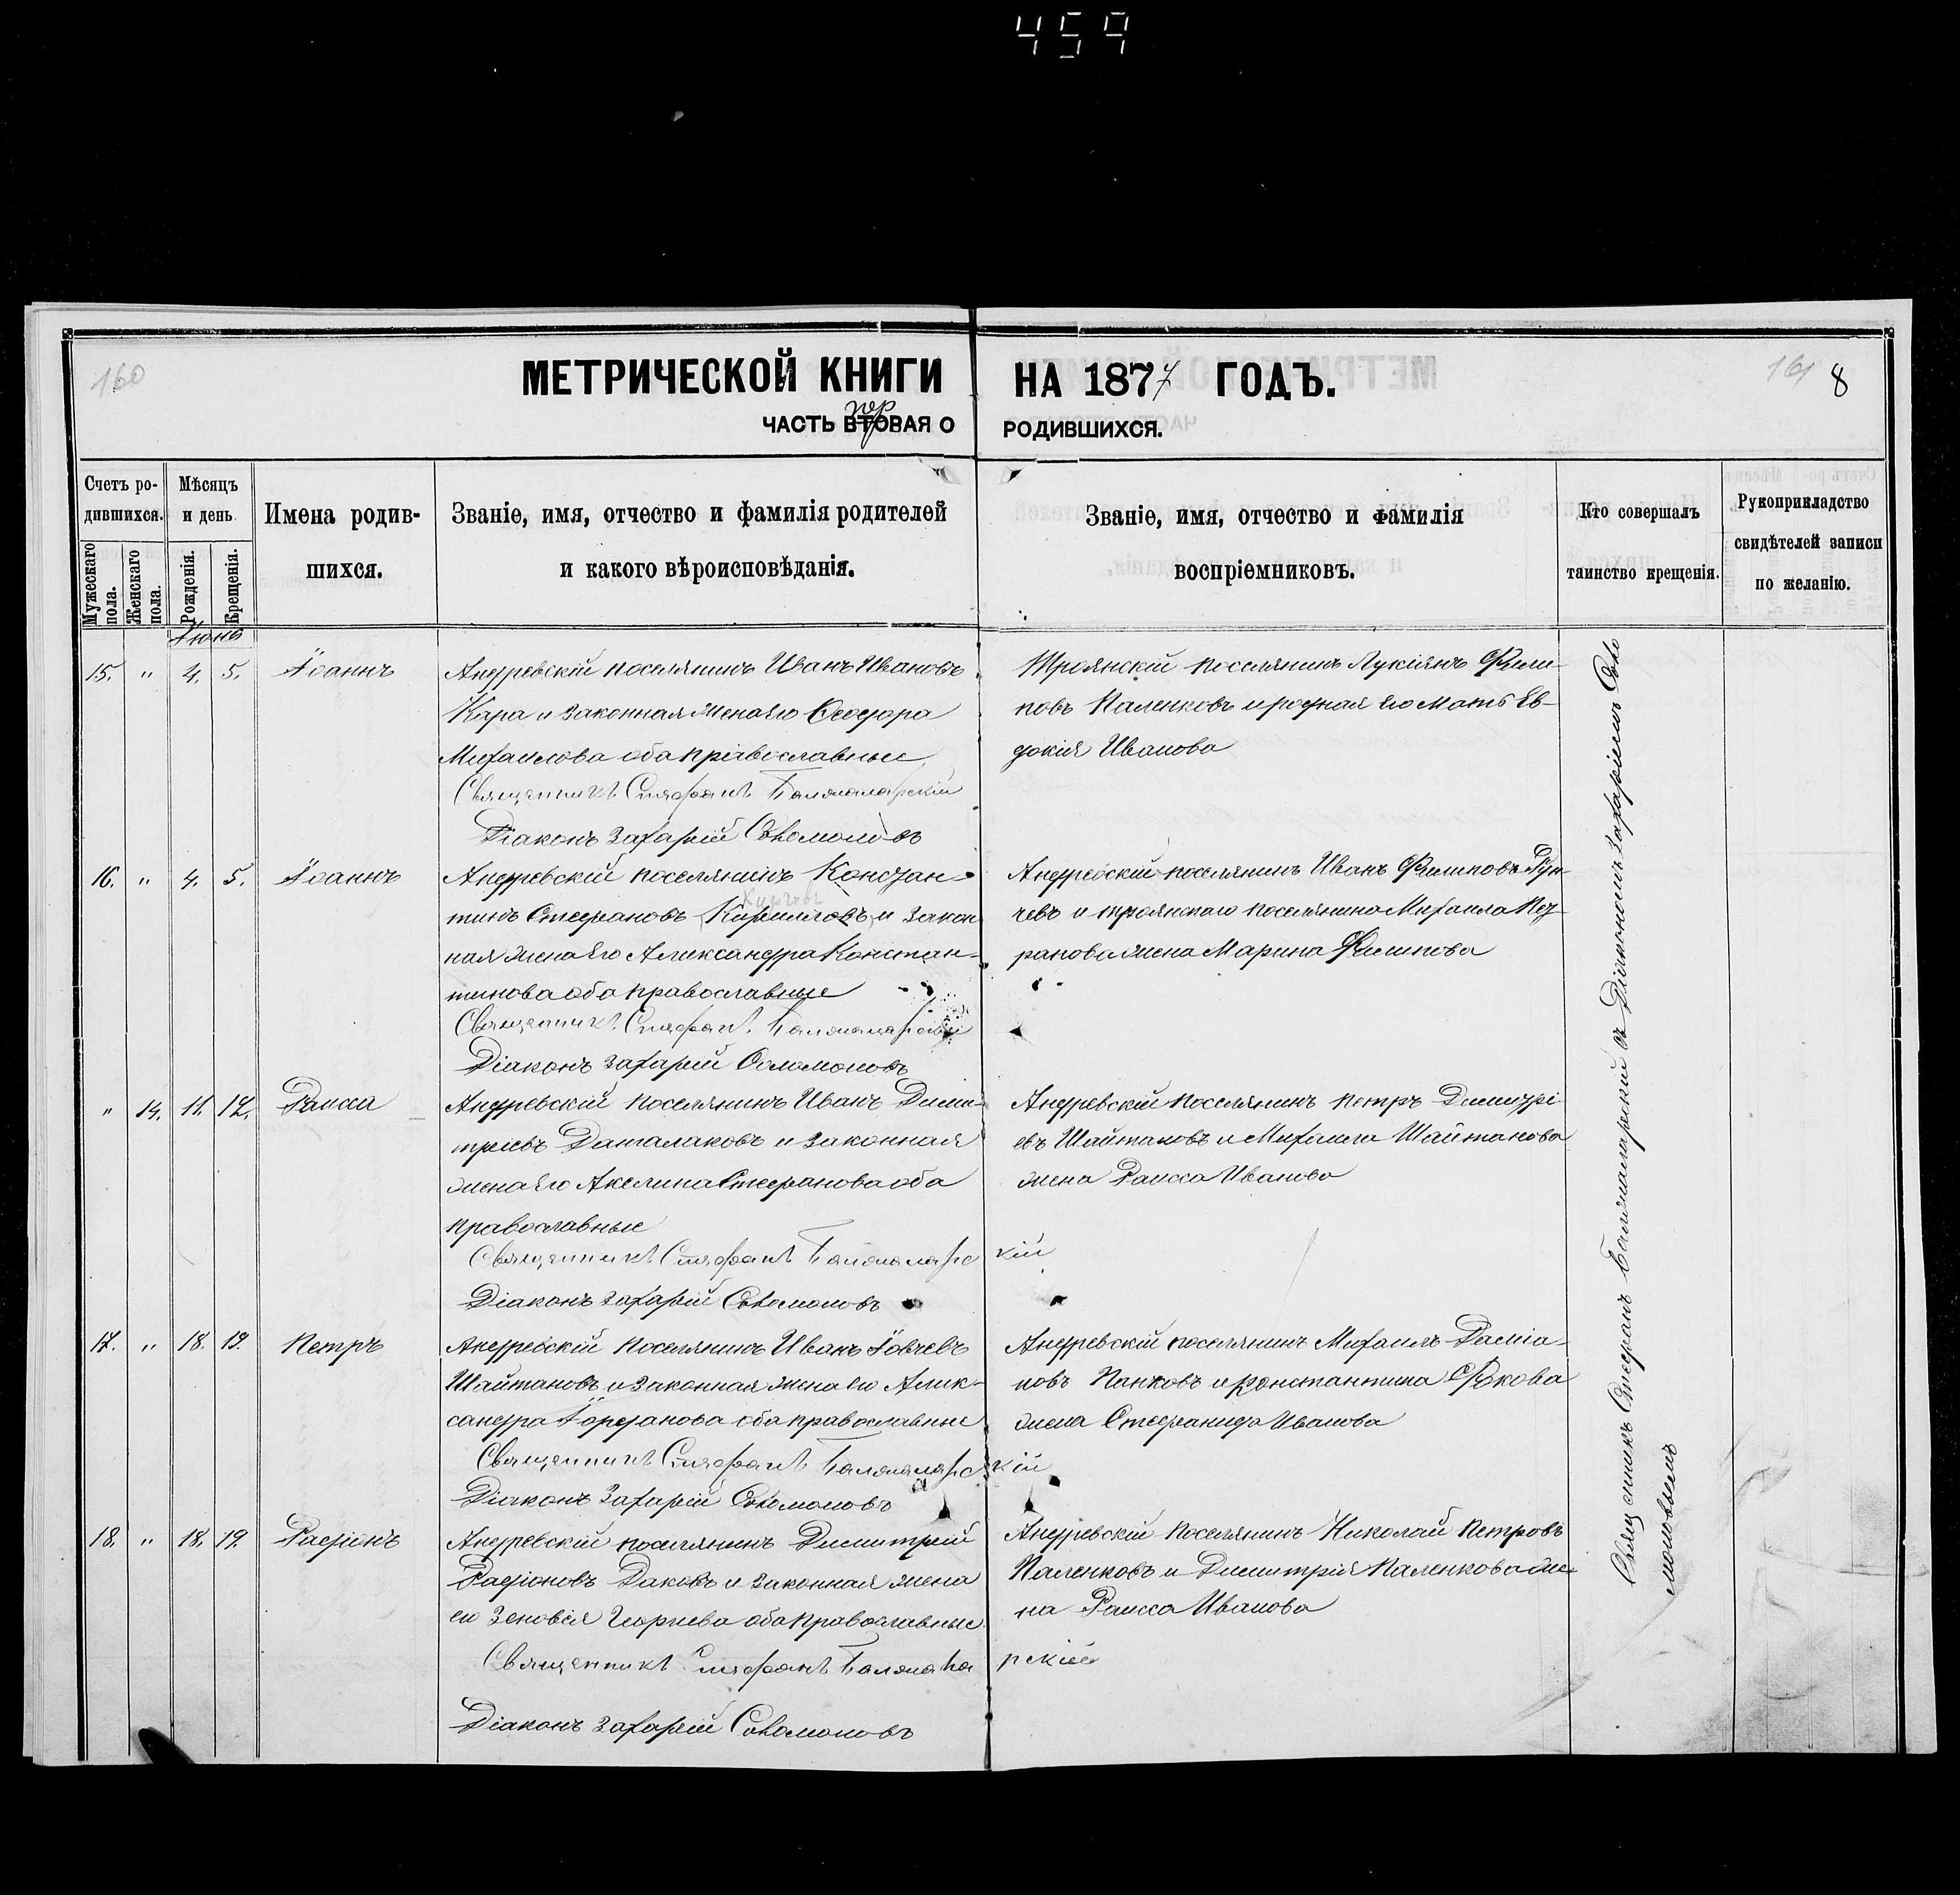 459
160
МЕТРИЧЕСКОЙ КНИГИ НА 1877 ГОДЪ.
161 8
ЧАСТЬ ВТОРАЯ О РОДИВШИХСЯ.
Счетъ родившихся.
Мужескаго пола.
Женскаго пола.
Мѣсяцъ и день
Рожденія.
Крещенія.
Имена родившихся.
Званіе, имя, отчество и фамилія родителей
и какого вѣроисповѣданія.
Званіе, имя, отчество и фамилія
воспріемниковъ.
Кто совершалъ
таинство крещенія.
Рукоприкладство
свидѣтелей записи
по желанію.
Іюнь
15. " 4. 5. Іоаннъ
Андревскій поселянинъ Иванъ Ивановъ
Кара и законная жена его Ѳеодора
Михаилова оба православные
Священникъ Стефанъ
Діаконъ Захарій Соломоновъ
Троянскій поселянинъ Лукіянъ Фили-
повъ Паленковъ и родная его мать Ев-
докія Иванова
16. " 4. 5. Іоаннъ
Андревскій поселянинъ Констан-
тинъ Стефановъ Кирилловъ и закон
ная жена его Александра Констан-
тинова оба православные
Священникъ Стефанъ
Діаконъ Захарій Соломоновъ
Андревскій поселянинъ Иванъ Филиповъ
чевъ и троянскаго поселянина Михаила
жена Марина Филипова
" 14. 11. 12. Раисса
Андревскій поселянинъ Иванъ Дими-
тріевъ Даталаковъ и законная
жена его Акелина Стефанова оба
православные
Священникъ Стефанъ
Діаконъ Захарій Соломоновъ
Андревскій поселянинъ Петръ Димитрі-
евъ Шайтановъ и Михаила Шайтанова
жена Раисса Иванова
17. " 18. 19. Петръ
Андревскій поселянинъ Иванъ Іовчевъ
Шайтановъ и законная жена его Алек-
сандра Іорданова оба православные
Священникъ Стефанъ
Діаконъ Захарій Соломоновъ
Андревскій поселянинъ Михаилъ Даміа-
новъ Панковъ и Константина
жена Стефанида Иванова
18. " 18. 19. Радіонъ
Андревскій поселянинъ Димитрій
Радіоновъ Даковъ и законная жена
его Зеновія Георгіева оба православные
Священникъ Стефанъ
Діаконъ Захарій Соломоновъ
Андревскій поселянинъ Николай Петровъ
Паленковъ и Димитрія Паленкова же-
на Раисса Иванова
Священникъ Стефанъ съ Діакономъ Захаріемъ Соло
моновымъ